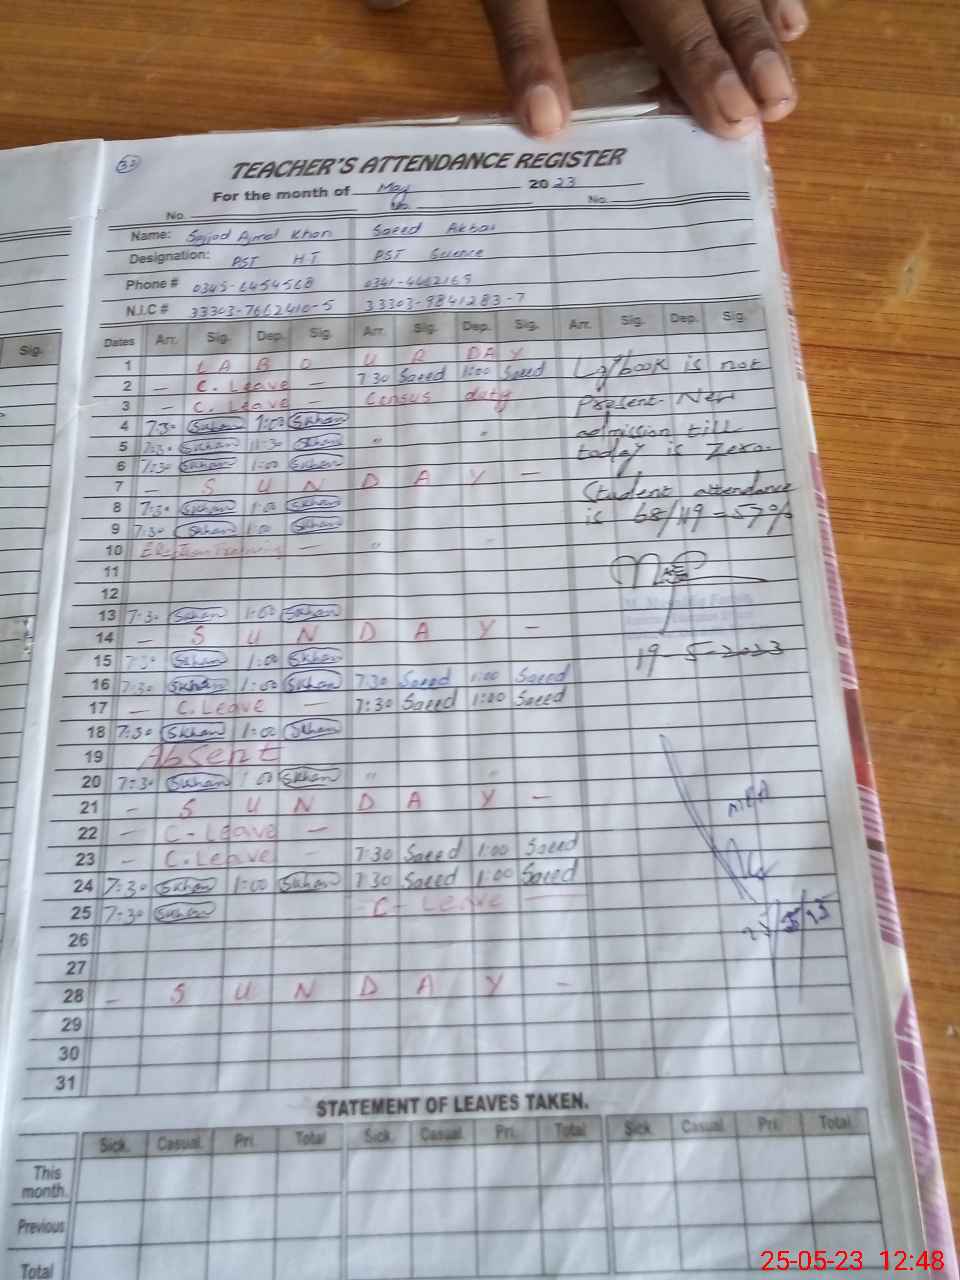 33
TEACHER'S ATTENDANCE REGISTER
For the month of May 2023
No. No. No.
Name: Sajjad Ajmal Khan Saeed Akbar
Designation: PST HT PST Science
Phone # 0345-6454568
N.I.C # 33303-7662410-5 33303-9841283-7
Dates Arr. Sig. Dep. Sig. Arr. Sig. Dep. Sig. Arr. Sig. Dep. Sig.
1 L A B O U R DAY
2 — C. Leave — 7 30 Saeed 1:00 Saeed
3 — C. Leave — Census duty
4 7:30 Skhan 1:00 Skhan
5 7:30 Skhan 11:30 Skhan " "
6 7:30 Skhan 1:00 Skhan
7 — S U N D A Y —
8 7:30 Skhan 1:00 Skhan
9 7:30 Skhan 1:00 Skhan
10 Election Training — " "
11
12
13 7:30 Skhan 1:00 Skhan
14 — S U N D A Y —
15 7:30 Skhan 1:00 Skhan
16 7:30 Skhan 1:00 Skhan 7:30 Saeed 1:00 Saeed
17 — C. Leave — 7:30 Saeed 1:00 Saeed
18 7:30 Skhan 1:00 Skhan
19 Absent
20 7:30 Skhan 1:00 Skhan " "
21 — S U N D A Y —
22 — C-Leave —
23 — C. Leave — 7:30 Saeed 1:00 Saeed
24 7:30 Skhan 1:00 Skhan 7:30 Saeed 1:00 Saeed
25 7:30 Skhan C- Leave
26
27
28 — S U N D A Y —
29
30
31
Logbook is not
Present. New
admission till
today is Zero.
Student attendance
is 68/119 = 57%
19-5-2023
MEA
STATEMENT OF LEAVES TAKEN.
Sick. Casual. Pri. Total Sick. Casual. Pri. Total Sick. Casual Pri. Total
This
month.
Previous
Total
Sig.
25-05-23 12:48